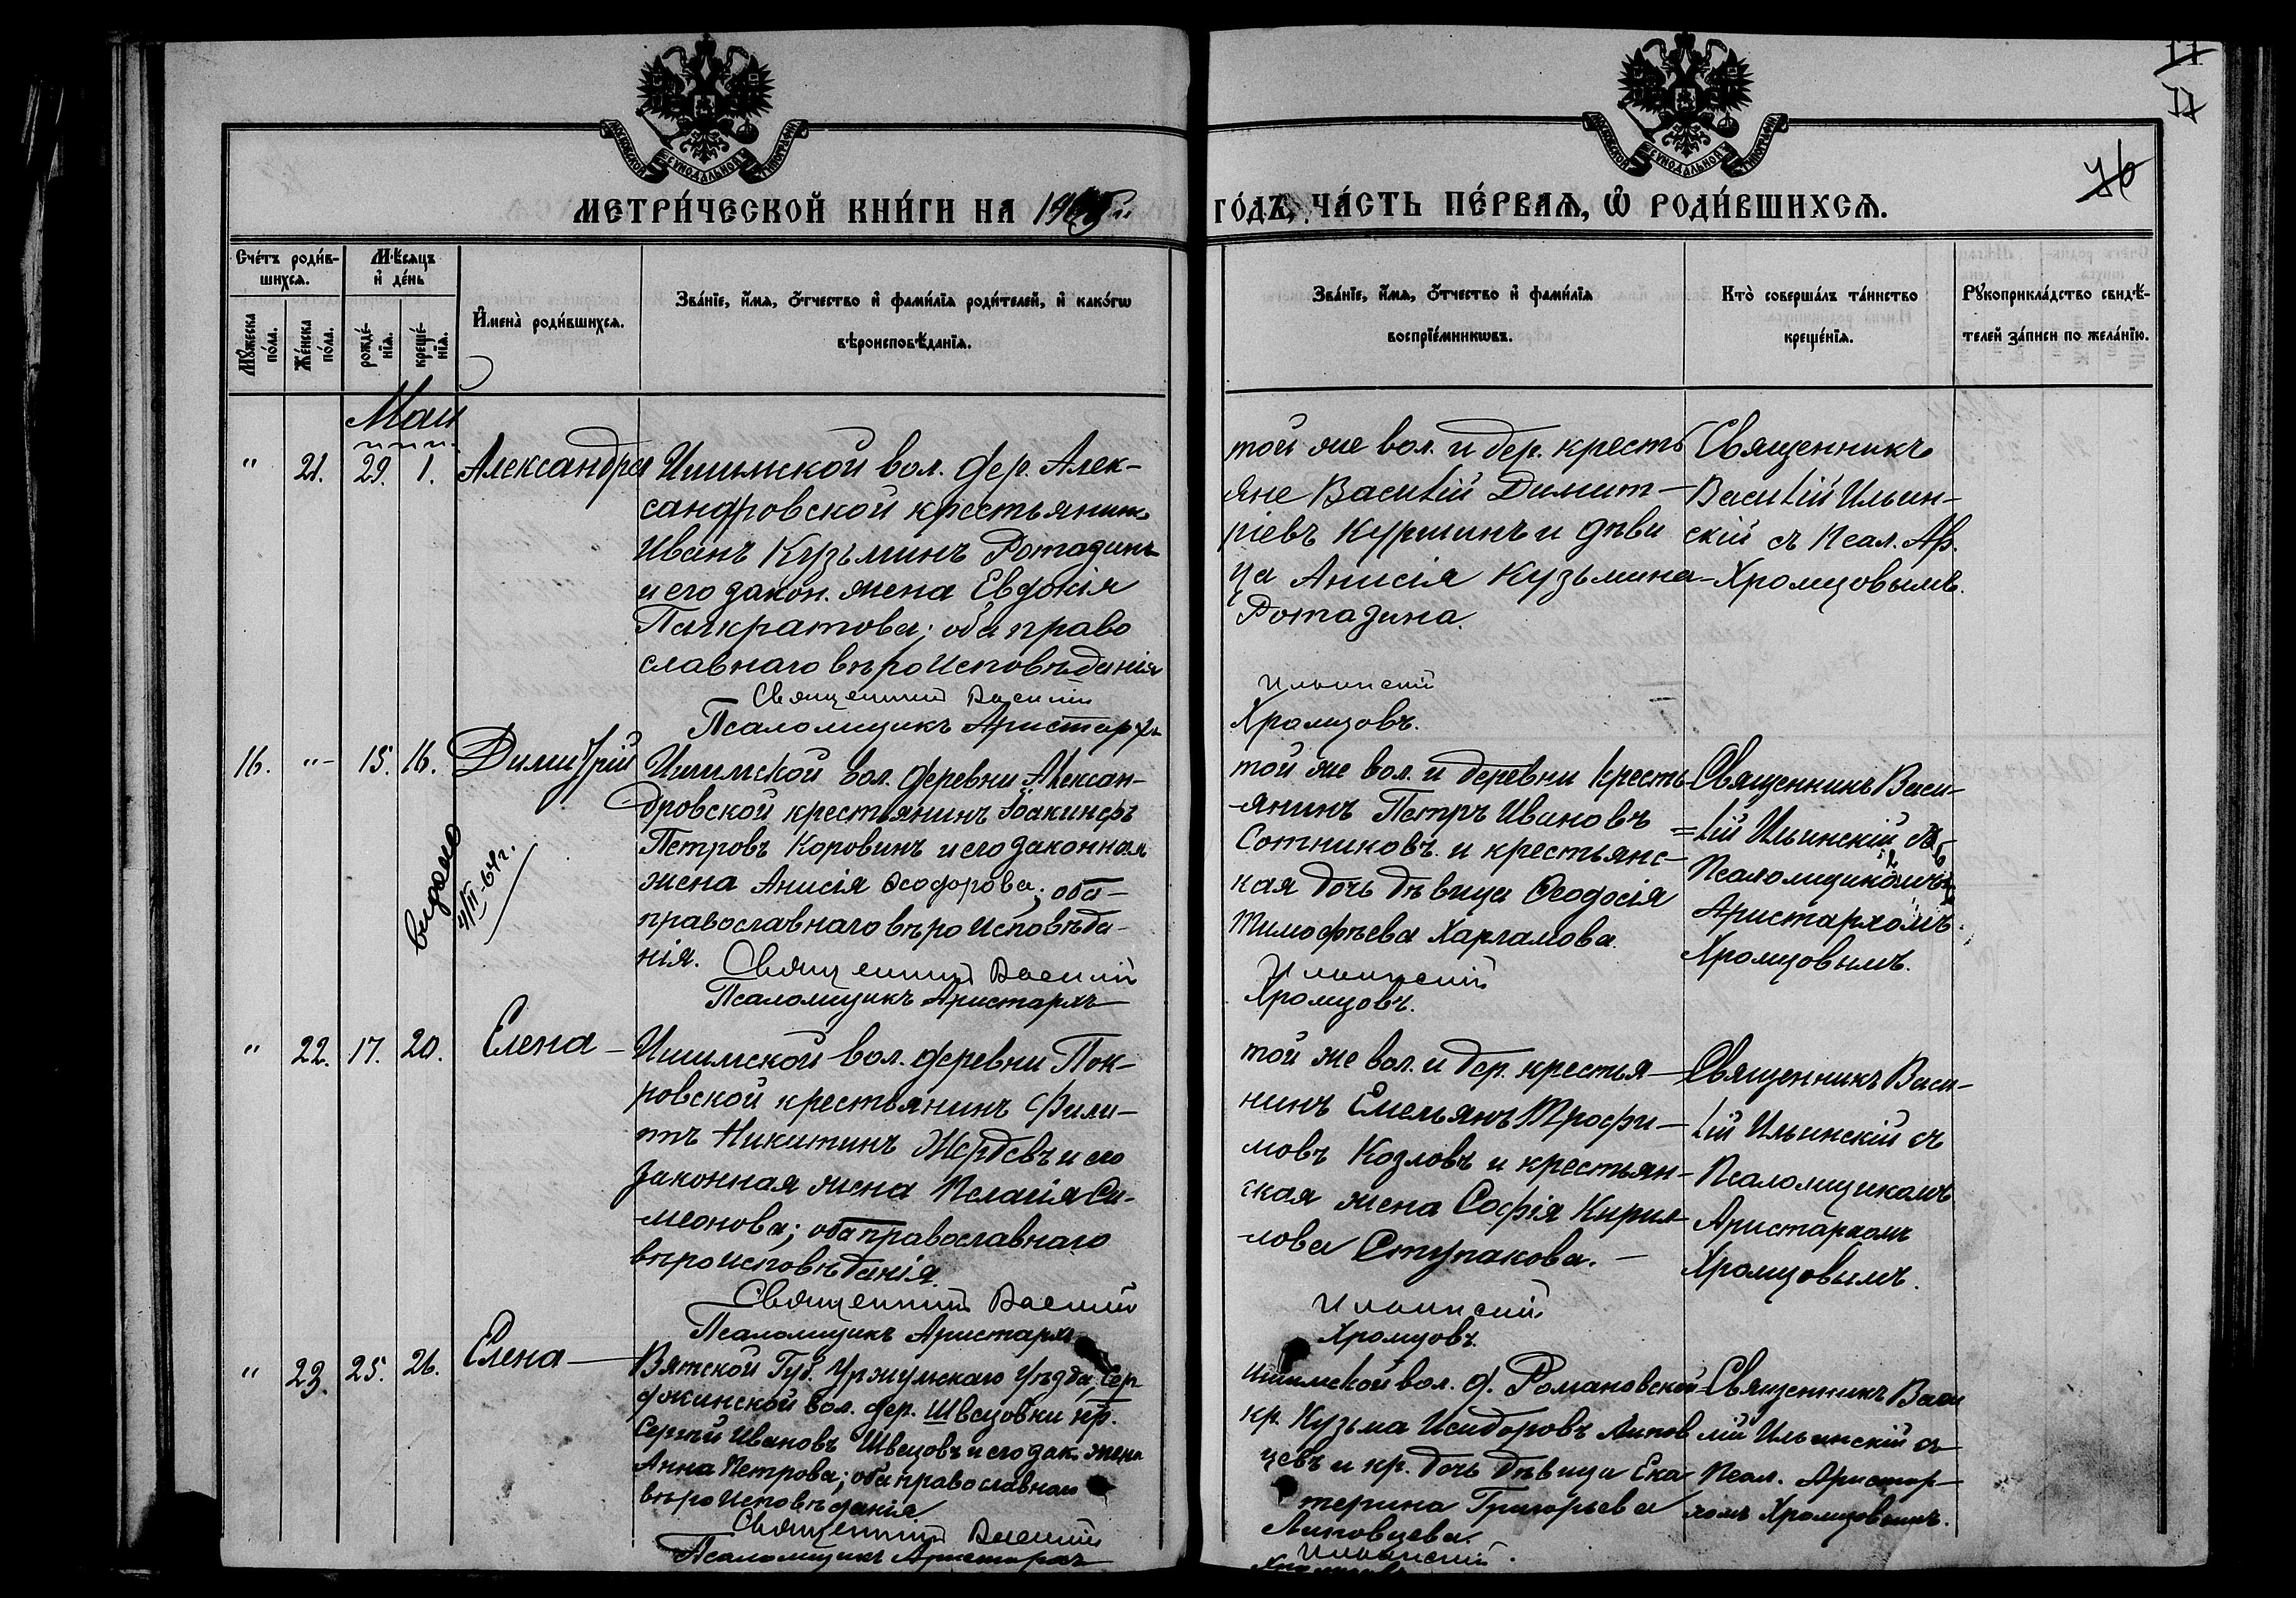 77
76
МОСКОВСКОЙ СѴНОДАЛЬНОЙ ТИПОГРАФІИ
МОСКОВСКОЙ СѴНОДАЛЬНОЙ ТИПОГРАФІИ
МЕТРИ́ЧЕСКОЙ КНИ́ГИ НА
ГО́ДЪ, ЧА́СТЬ ПЕ́РВАѦ, Ѽ РОДИ́ВШИХСѦ.
Сче́тъ роди́в-
шихсѧ.
Мѣ́сяцъ
и҆ де́нь
Мꙋ́жеска
по́ла.
Же́нска
по́ла.
рожде́-
нїѧ.
креще́-
нїѧ.
И҆мена̀ роди́вшихсѧ.
Зва́нїе, и҆́мѧ, ѻ҆́тчество и҆ фами́лїѧ роди́телей, и҆ како́гѡ
вѣроисповѣ́данїѧ.
Зва́нїе, и҆́мѧ, ѻ҆́тчество и҆ фами́лїѧ
воспрїе́мникѡвъ.
Кто̀ соверша́лъ та́инство
креще́нїѧ.
Рꙋкоприкла́дство свидѣ́-
телей за́писи по жела́нїю.
Май
" 21. 29. 1. Александра
Ишимской вол. дер. Алек-
сандровской крестьянинъ
Иванъ Кузьминъ Ротазинъ
и его закон. жена Евдокія
Панкратова; оба право
славнаго вѣроисповѣданія
Священникъ Василій
Псаломщикъ Аристархъ
той же вол. и дер. кресть
яне Василій Димит-
ріевъ Куршинъ и дѣви
ца Анисія Кузьмина
Ротазина.
Ильинскій
Хромцовъ.
Священникъ
Василій Ильин-
скій съ Псал. Ар.
Хромцовымъ.
16. "- 15. 16. Димитрій
выдано
4/III-64г.
Ишимской вол. деревни Алексан-
дровской крестьянинъ Іоакинфъ
Петровъ Коровинъ и его законная
жена Анисія Ѳеодорова; оба
православнаго вѣроисповѣда-
нія. Священникъ Василій
Псаломщикъ Аристархъ
той же вол. и деревни кресть
-янинъ Петръ Ивановъ
Сотниковъ и крестьянс-
кая дочь дѣвица Ѳеодосія
Тимофѣева Харламова.
Ильинскій
Хромцовъ.
Священникъ Васи-
=лій Ильинскій съ
Псаломщикомъ
Аристархомъ
Хромцовымъ.
" 22. 17. 20. Елена-
Ишимской вол. деревни Пок-
ровской крестьянинъ Фили-
ппъ Никитинъ Жердевъ и его
законная жена Пелагія Си-
меонова; оба православнаго
вѣроисповѣданія.
Священникъ Василій
Псаломщикъ Аристархъ
той же вол. и дер. крестья-
нинъ Емельянъ Трофи-
мовъ Козловъ и крестьян-
ская жена Софія Кирил
-лова Ступакова.-
Ильинскій
Хромцовъ.
Священникъ Васи-
лій Ильинскій съ
Псаломщикомъ
Аристархомъ
Хромцовымъ.
" 23. 25. 26. Елена-
Вятской Губ. Уржумскаго Уѣзда, Сер
джинской вол. дер. Швецовки кр.
Сергѣй Ивановъ Швецовъ и его зак. жена
Анна Петрова; оба православнаго
вѣроисповѣданія
Священникъ Василій
Псаломщикъ Аристархъ
Ишимской вол. д. Романовской
кр. Кузьма Исидоровъ Липов
цевъ и кр. дочь дѣвица Ека
терина Григорьева
Липовцева.
Ильинскій.
Священникъ Васи
лій Ильинскій съ
Псал. Аристар-
хомъ Хромцовымъ.